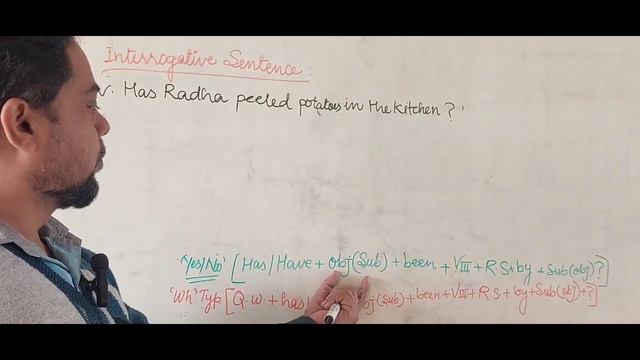 Interrogative Sentence :
V. Has Radha peeled potatoes in the Kitchen ?
'Yes/No' [Has/Have + obj(Sub) + been + VIII + R.S + by + Sub(obj) ?]
'Wh' Typ [Q.W. + has/ obj(Sub) + been + VIII + R.S + by + Sub(obj) + ?]